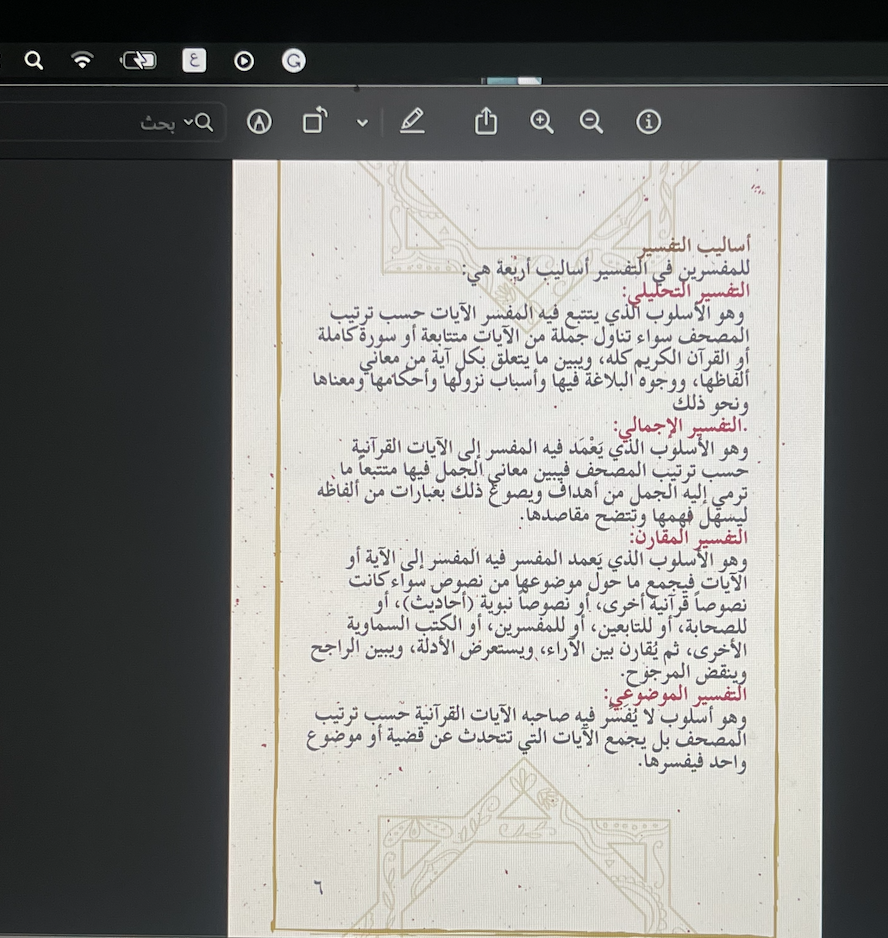 ع
بحث
أساليب التفسير
للمفسرين في التفسير أساليب أربعة هي:
التفسير التحليلي:
وهو الأسلوب الذي يتتبع فيه المفسر الآيات حسب ترتيب
المصحف سواء تناول جملة من الآيات متتابعة أو سورة كاملة
أو القرآن الكريم كله، ويبين ما يتعلق بكل آية من معاني
ألفاظها، ووجوه البلاغة فيها وأسباب نزولها وأحكامها ومعناها
ونحو ذلك
.التفسير الإجمالي:
وهو الأسلوب الذي يَعْمَد فيه المفسر إلى الآيات القرآنية
حسب ترتيب المصحف فيبين معاني الجمل فيها متتبعاً ما
ترمي إليه الجمل من أهداف ويصوغ ذلك بعبارات من ألفاظه
ليسهل فهمها وتتضح مقاصدها.
التفسير المقارن:
وهو الأسلوب الذي يَعمد المفسر فيه المفسر إلى الآية أو
الآيات فيجمع ما حول موضوعها من نصوص سواء كانت
نصوصاً قرآنية أخرى، أو نصوصاً نبوية (أحاديث)، أو
للصحابة، أو للتابعين، أو للمفسرين، أو الكتب السماوية
الأخرى، ثم يُقارن بين الآراء، ويستعرض الأدلة، ويبين الراجح
وينقض المرجوح.
التفسير الموضوعي:
وهو أسلوب لا يُفسِّر فيه صاحبه الآيات القرآنية حسب ترتيب
المصحف بل يجمع الآيات التي تتحدث عن قضية أو موضوع
واحد فيفسرها.
٦